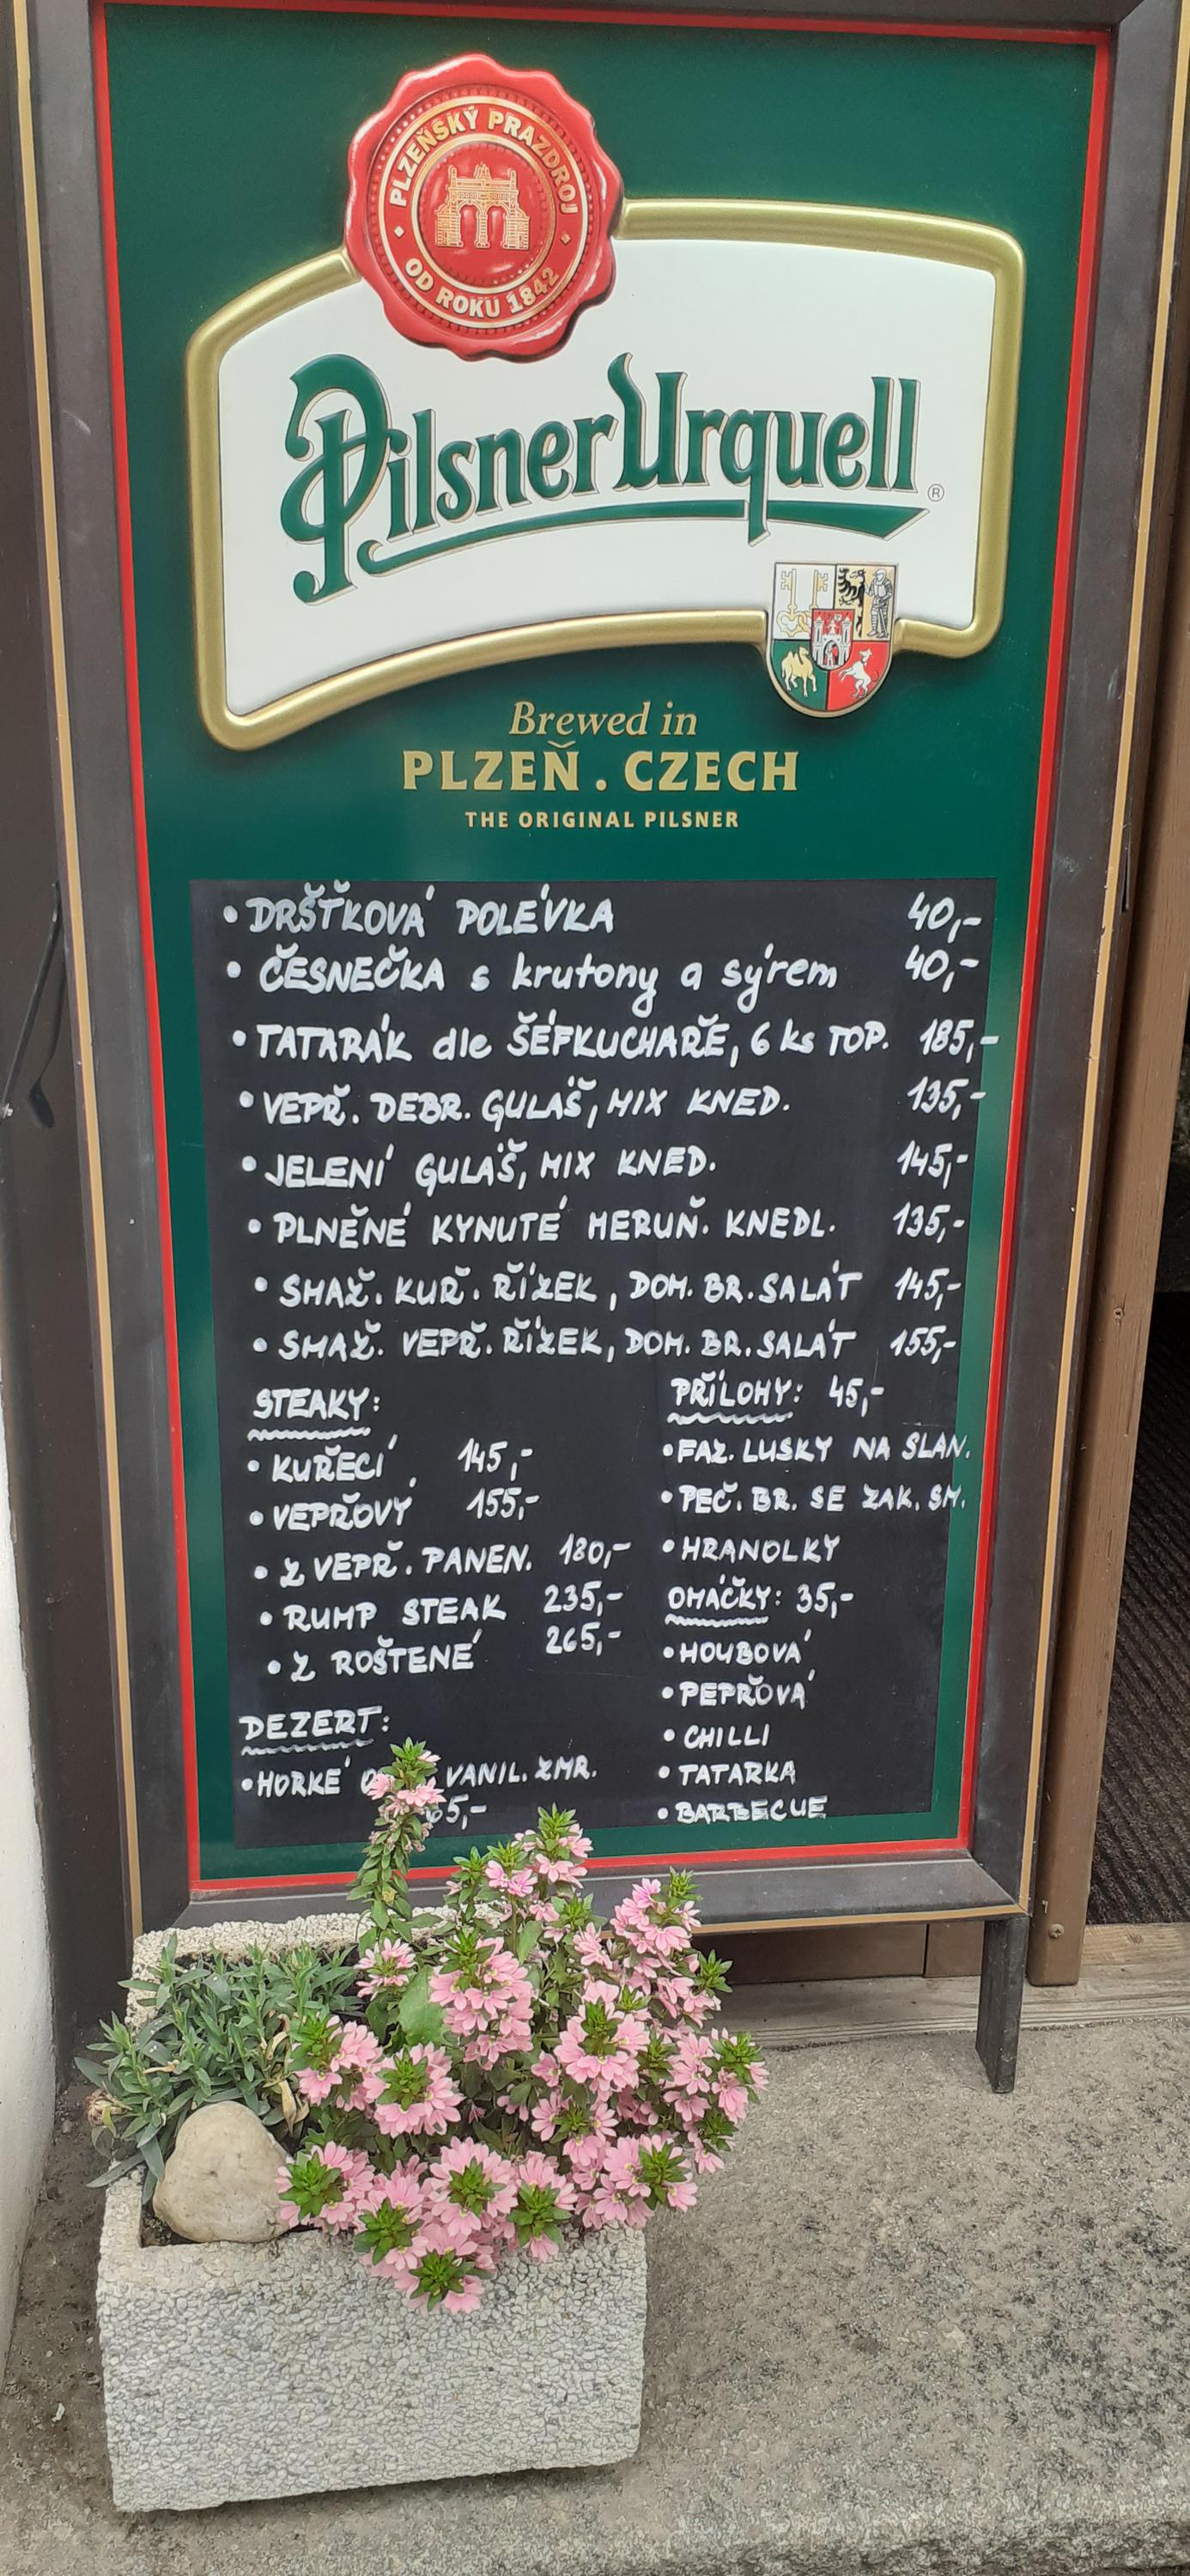 PLZEŇSKÝ PRAZDROJ
OD ROKU 1842
Pilsner Urquell ®
Brewed in
PLZEŇ . CZECH
THE ORIGINAL PILSNER
• DRŠŤKOVÁ POLÉVKA 40,-
• ČESNEČKA s krutony a sýrem 40,-
• TATARÁK dle ŠÉFKUCHAŘE, 6 ks TOP. 185,-
• VEPŘ. DEBR. GULÁŠ, MIX KNED. 135,-
• JELENÍ GULÁŠ, MIX KNED. 145,-
• PLNĚNÉ KYNUTÉ MERUŇ. KNEDL. 135,-
• SMAŽ. KUŘ. ŘÍZEK, DOM. BR. SALÁT 145,-
• SMAŽ. VEPŘ. ŘÍZEK, DOM. BR. SALÁT 155,-
STEAKY:
• KUŘECÍ 145,-
• VEPŘOVÝ 155,-
• Z VEPŘ. PANEN. 180,-
• RUMP STEAK 235,-
• Z ROŠTĚNÉ 265,-
DEZERT:
• HORKÉ VANIL. ZMR.
65,-
PŘÍLOHY: 45,-
• FAZ. LUSKY NA SLAN.
• PEČ. BR. SE ZAK. SM.
• HRANOLKY
OMÁČKY: 35,-
• HOUBOVÁ
• PEPŘOVÁ
• CHILLI
• TATARKA
• BARBECUE